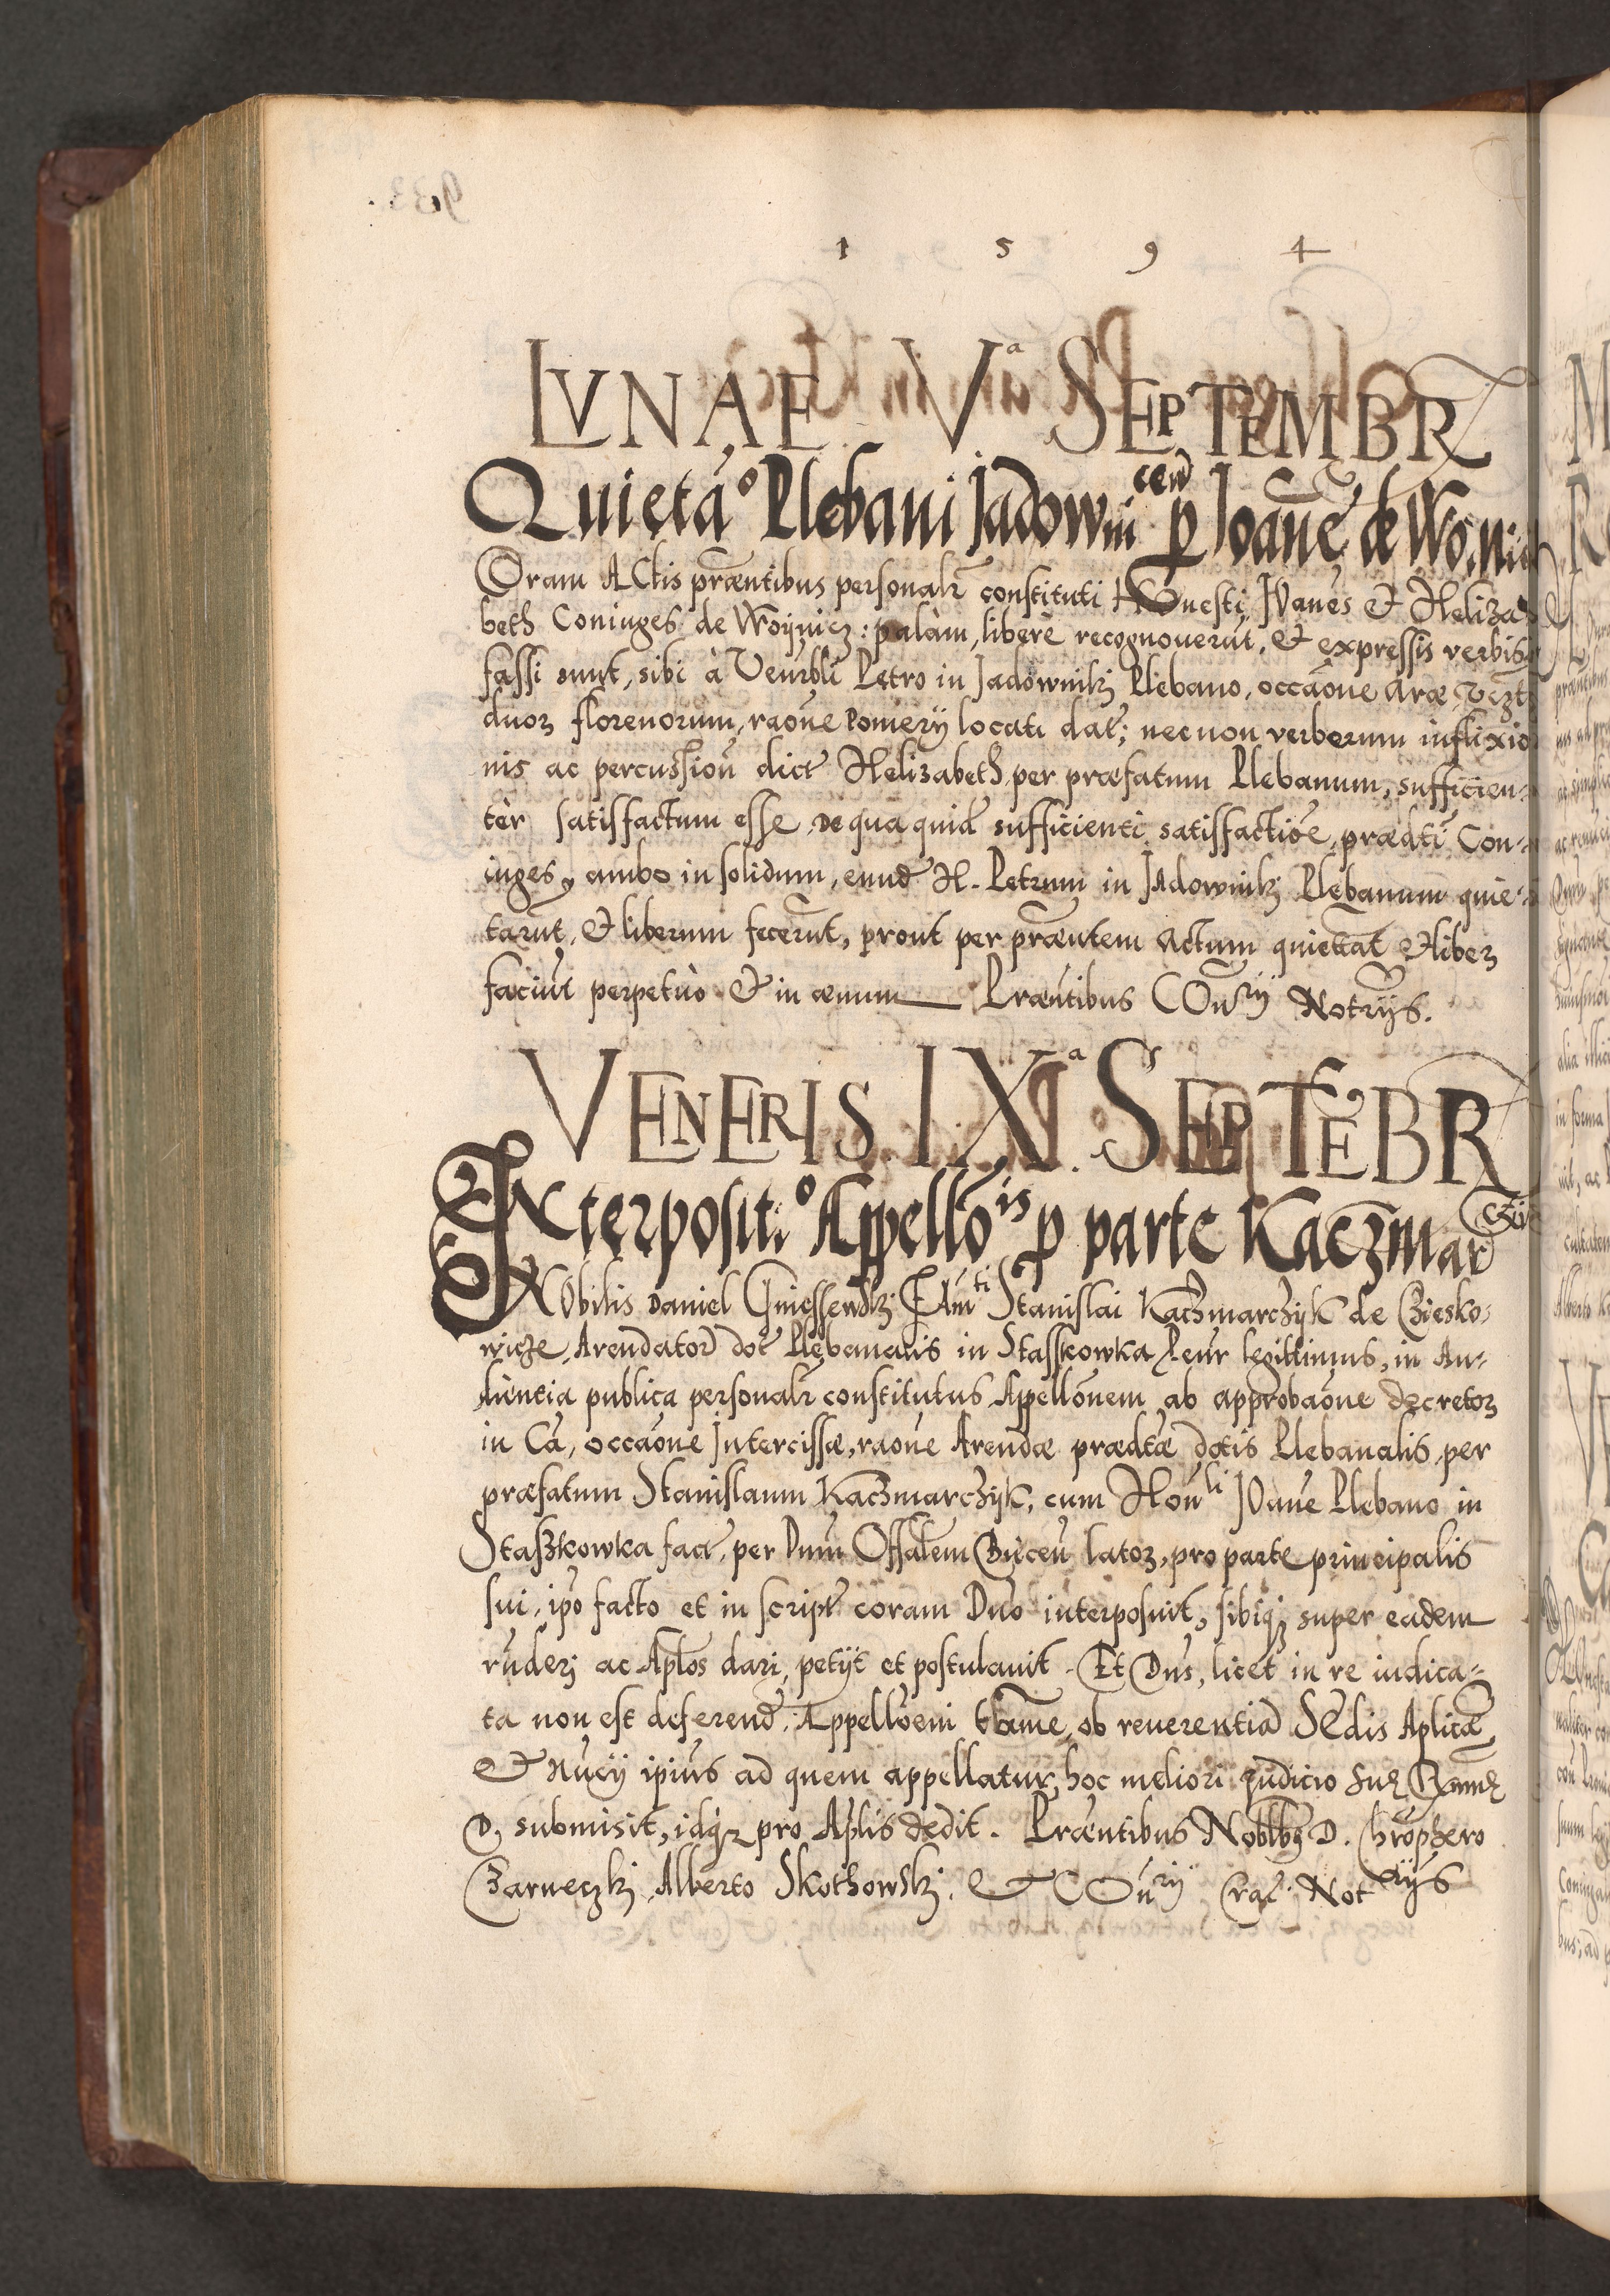 1 5 9 4
LVNAE Vª SEPTEMBR
Quieta͠o Plebani Jadownicen̄ p Joan̄e de Woÿnic
Coram ACtis præn̄tibus personalr̄ constituti HOnesti JOan̄es et Heliza-
beth Coniuges de Woÿnicz: palàm, liberè recognouerūt, et expressis verbis
fassi sunt, sibi à Venr̄bli Petro in Jadowniki Plebano, occāone Aræ
duoꝝ florenorum, raōne Pomerÿ locati dat̄; necnon verberum inflixio
nis ac percussion̄ dict̄ Helizabeth per præfatum Plebanum, sufficien-
ter satisfactum esse, De qua quid̄ sufficienti satisfactiōe, prædt̄i Con-
iuges, ambo in solidum, eund̄ H. Petrum in JAdowniki Plebanum quie-
tarūt, et liberum fecerūt, prout per præn̄tem Actum quiettāt et liberꝝ
faciūt perpetuò et in æuum Præn̄tibus COn̄rÿ Notrÿs.
VENERIS IXª SEPTĒBR
INterpositi͠o Appellōis p parte Kaczmar
NObilis Daniel Gniessewski FAmti Stanislai Kaczmarczÿk de Czieско-
wicze, Arendator̄ dot̄ Plebanalis in Stasskowka Pcur̄ legittimus, in Au-
dientia publica personalr̄ constitutus Appellōnem ab approbaōne decretoꝝ
in Cā, occāone Intercissæ, raōne Arendæ prædtæ dotis Plebanalis, per
præfatum Stanislaum Kaczmarczÿk, cum Hon̄li JOan̄e Plebano in
Staszkowka fact̄, per Dnūm Offālem Biecen̄ latoꝝ, pro parte principalis
sui, ipō facto et in script̄ coram Dnō interposuit, sibiqꝫ super eadem
r̄nderi ac Aplōs dari, petÿt et postulauit. Et Dn̄s, licet in re iudica-
ta non est deferend̄, Appellōem tāme, ob reuerentiā SEdis Aplicæ
et Nūcÿ ipīus ad quem appellatur, hoc meliori iudicio Suæ Rnmæ
D. submisit, idqꝫ pro Aplīs dedit. Præn̄tibus Noblbꝫ D. Chrōphero
Czarneczki, Alberto Skothowski, et COn̄rÿ Crac̄. Notrÿs